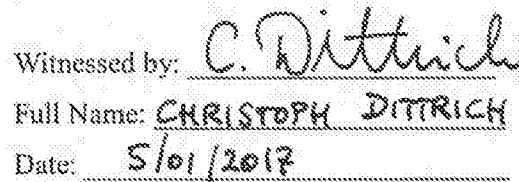 Witnessed by: C. Dittrich
Full Name: CHRISTOPH DITTRICH
Date: 5/01/2017